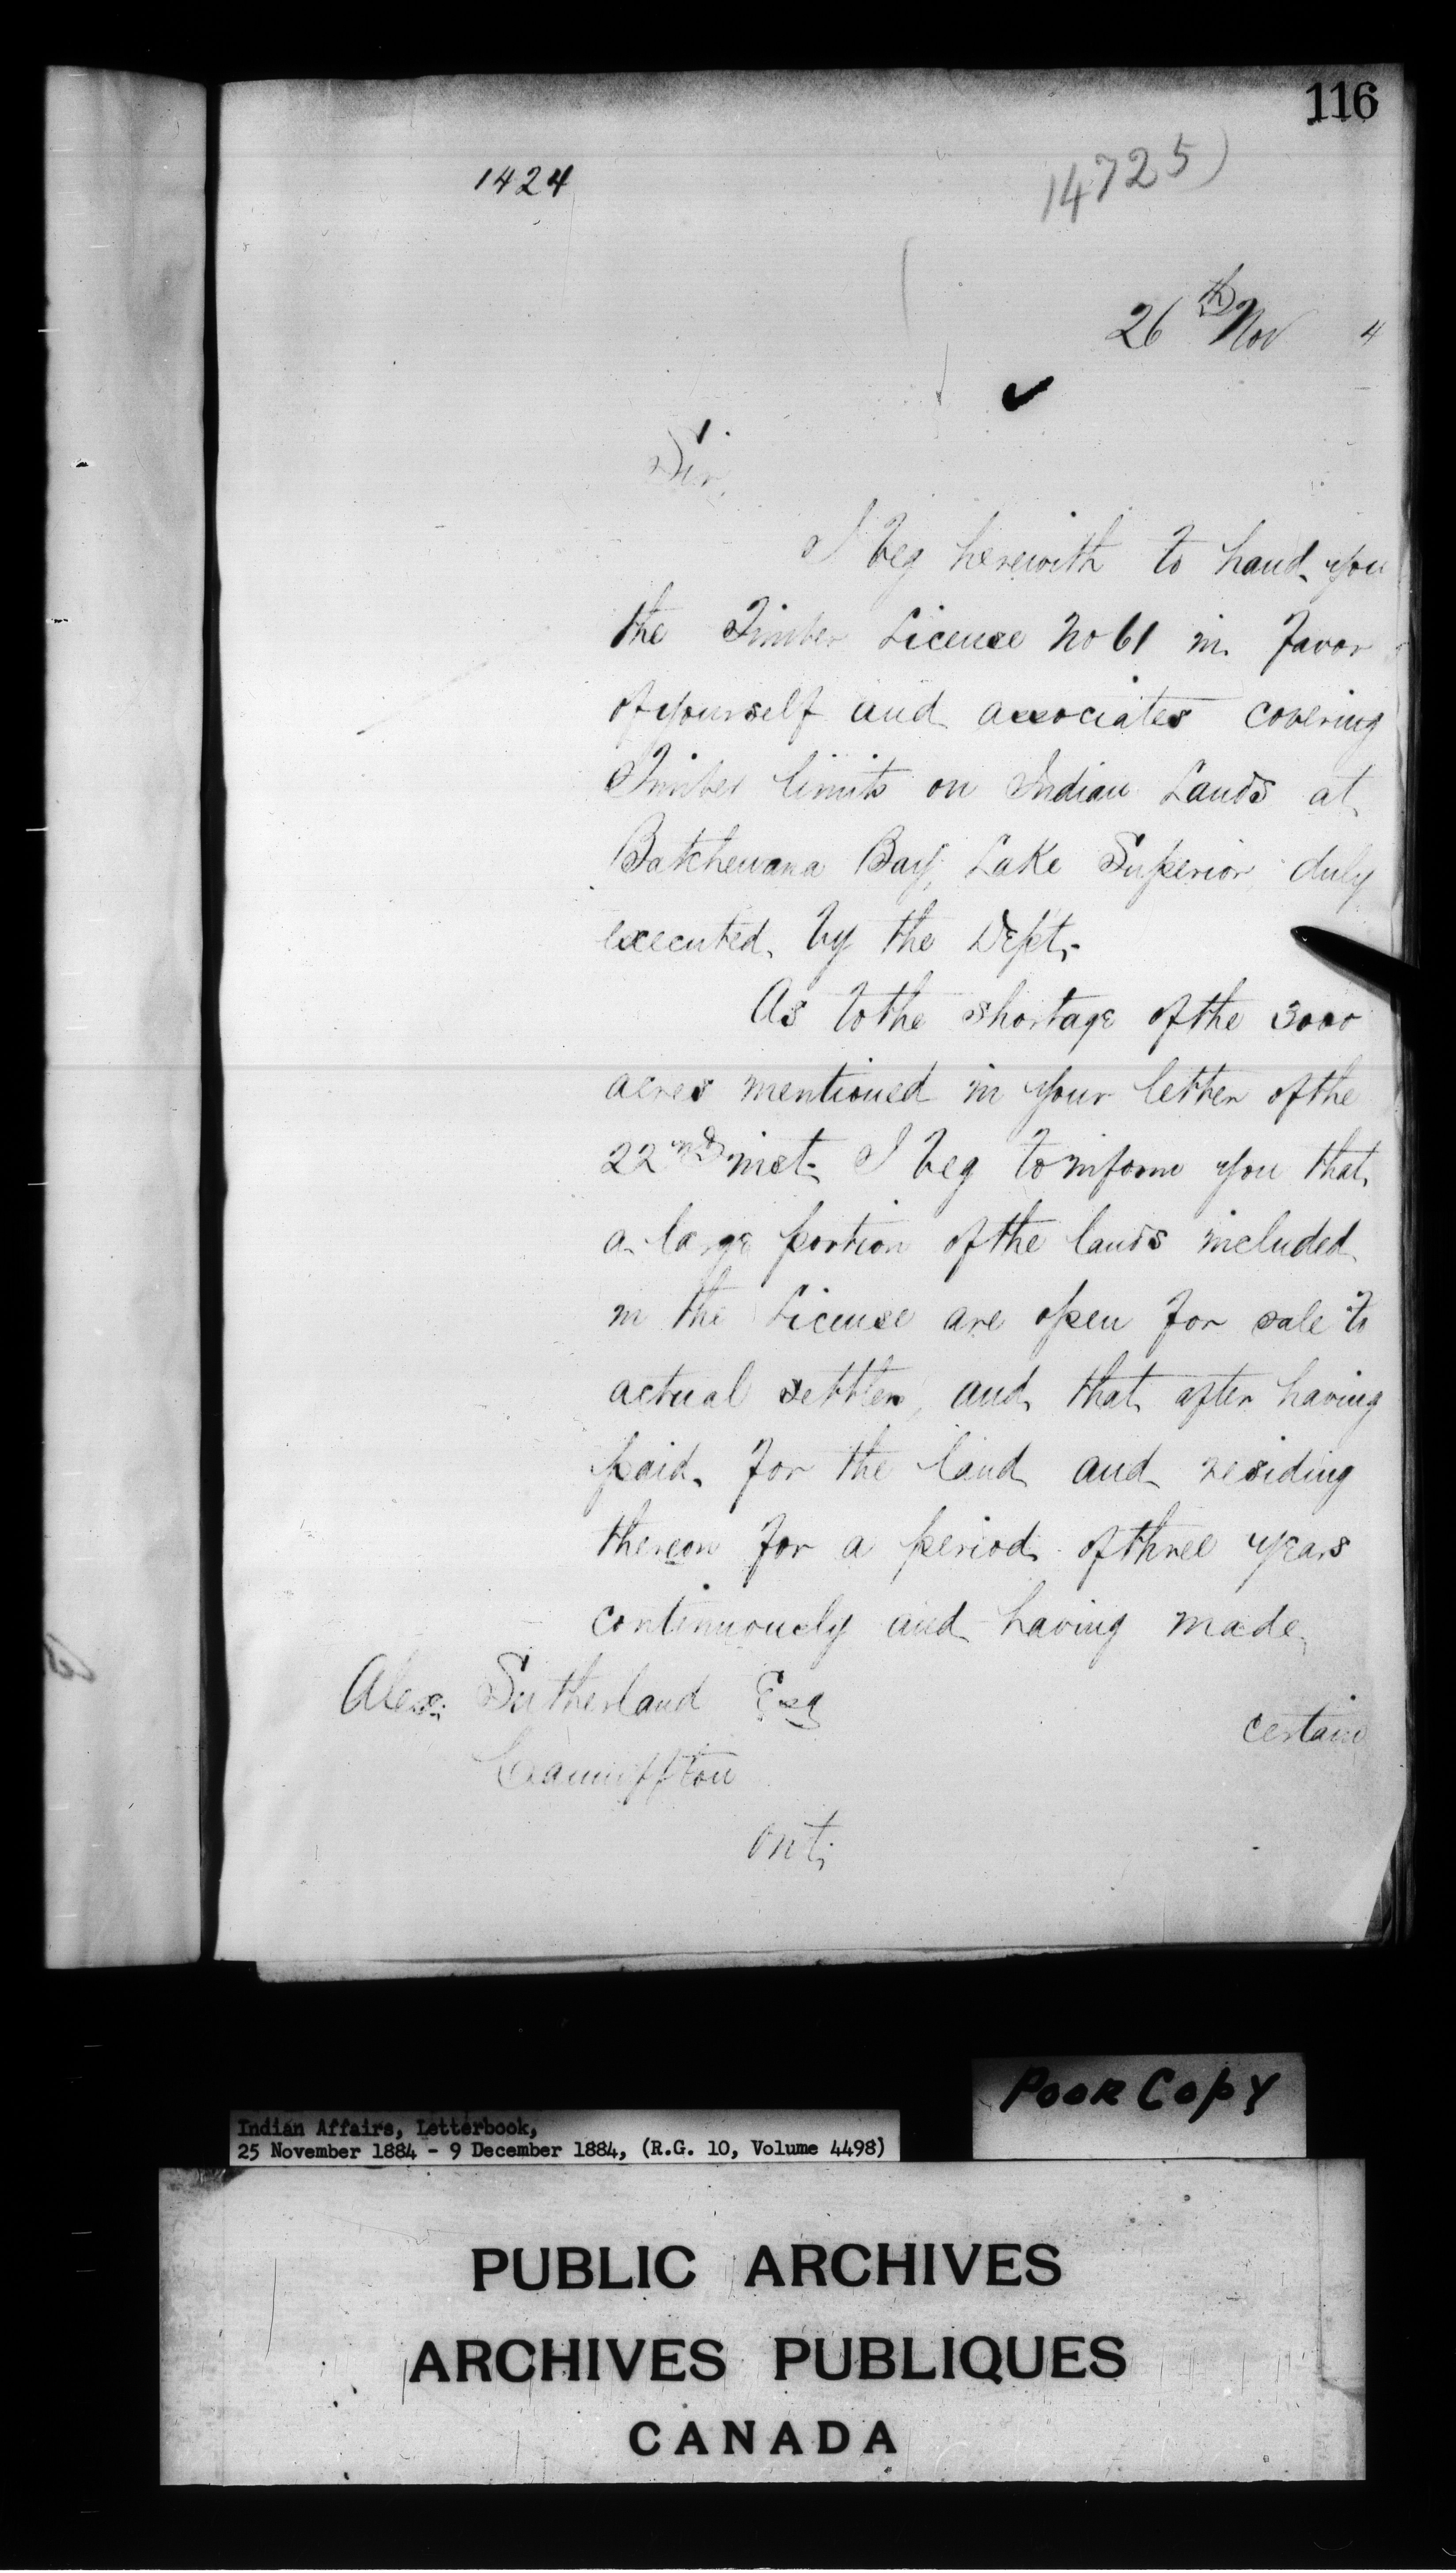 116
1424
14725)
26th Nov 4
Sir,
I beg herewith to hand you
the Timber License No 61 in favor
of yourself and associates covering
Timber limits on Indian Lands at
Batchewana Bay, Lake Superior, duly
executed by the Dept.
As to the shortage of the 3000
acres mentioned in your letter of the
22nd inst. I beg to inform you that
a large portion of the lands included
in the License are open for sale to
actual settlers, and that after having
paid for the land and residing
thereon for a period of three years
continuously and having made
Alex: Sutherland Esq
certain
Cannifton
Ont.
Poor Copy
Indian Affairs, Letterbook,
25 November 1884 - 9 December 1884, (R.G. 10, Volume 4498)
PUBLIC ARCHIVES
ARCHIVES PUBLIQUES
CANADA